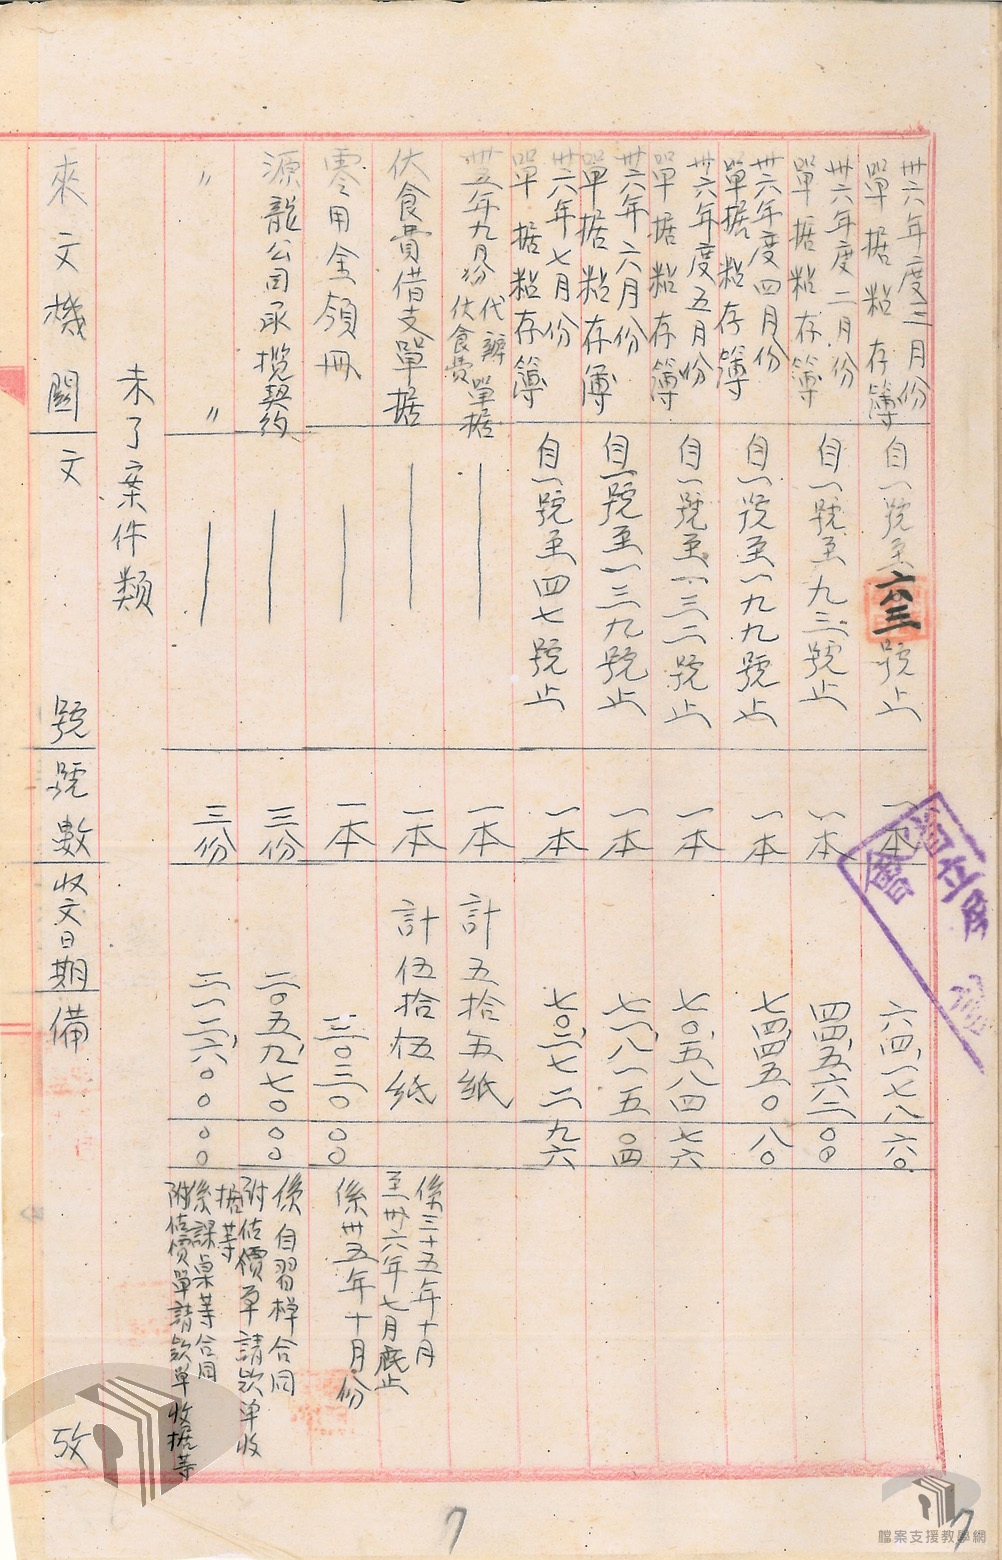 卅六年度三月份
單据粘存簿 自一號至六三號止 一本 六四、一七八六〇
卅六年度二月份
單据粘存簿 自一號至九三號止 一本 四四、五六二〇〇
卅六年度四月份
單据粘存簿 自一號至一九九號止 一本 七四、四五〇八〇
卅六年度五月份
單据粘存簿 自一號至一三二號止 一本 七〇、五八四七六
卅六年六月份
單据粘存簿 自一號至一三九號止 一本 七一、八一五〇四
卅六年七月份
單据粘存簿 自一號至四七號止 一本 七〇、七一二九六
卅五年九月份代辦伙食費單据 一本 計五拾五紙
伙食費借支單据 一本 計伍拾伍紙 係三十五年十月
至卅六年七月底止
零用金領冊 一本 三〇三〇〇〇 係卅五年十月份
源龍公司承攬契約 三份 二〇五、九七〇〇〇 係自習棹合同
附估價單請款單收
据等
〃 〃 三份 二一二、六〇〇〇〇 係課桌等合同
附估價單請款單收据等
未了案件類
來文機關 文號 號數 收文日期 備攷
7
7
檔案支援教學網